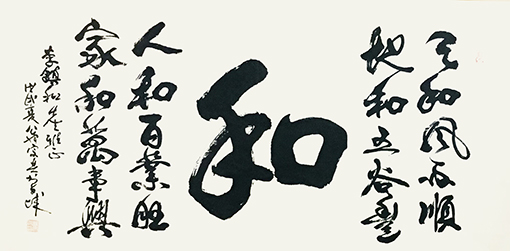 天和風雨順
地和五谷豐
和
人和百業旺
家和萬事興
李鎮和先生雅正
戊戌夏